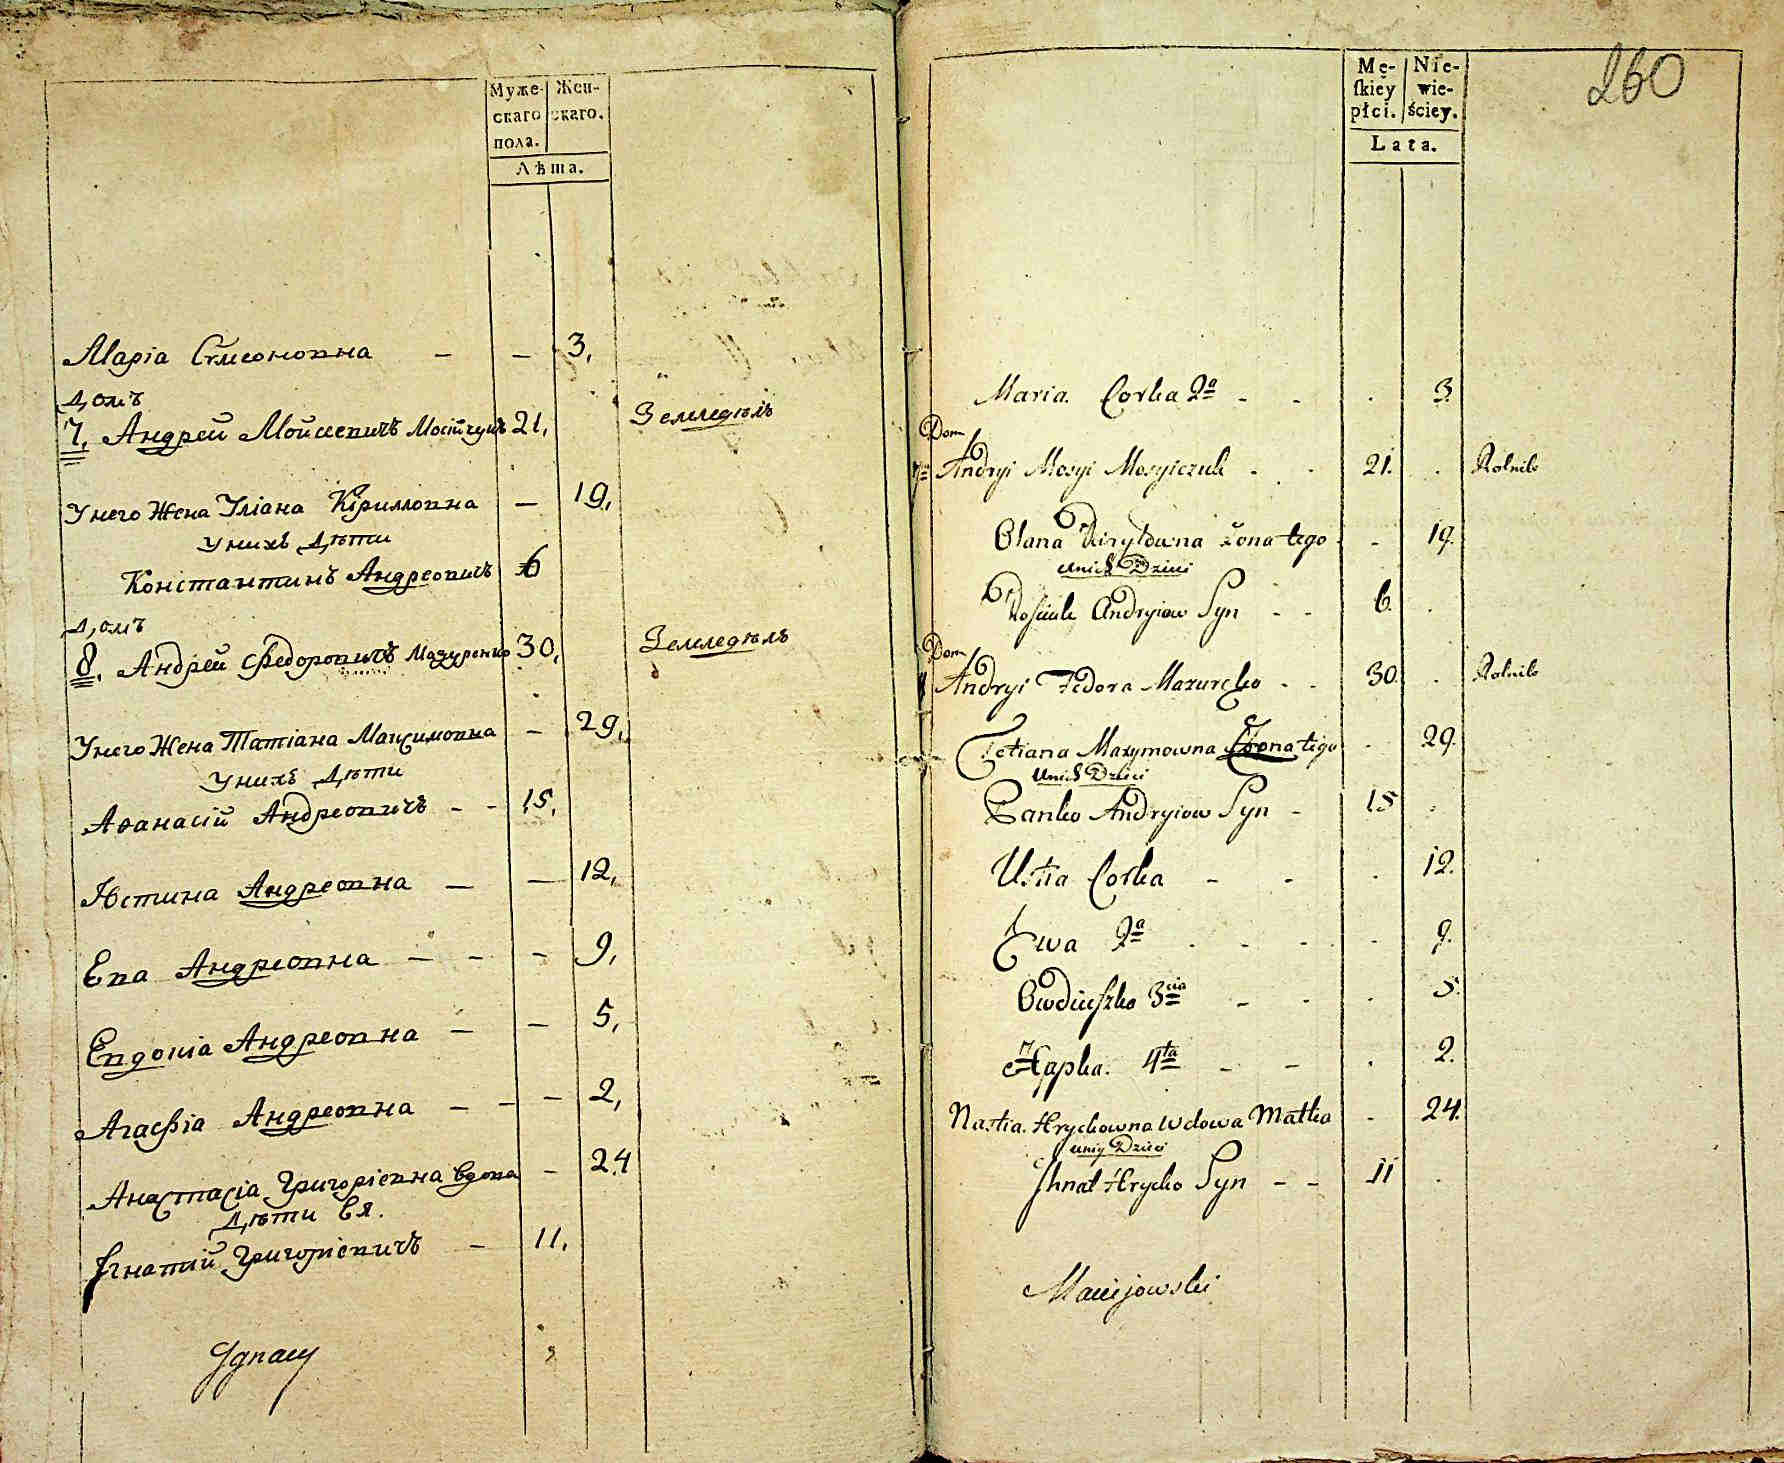 Муже-
скаго
пола.
Жен-
скаго.
Лѣта.
Маріа Сѵмеоновна — — 3,
Домъ
7. Андрей Мойсеевичъ Мосійчукъ 21, Земледѣлъ
У него Жена Уліана Кірилловна — 19,
У нихъ Дѣти
Константинъ Андреевичъ 6
Домъ
8. Андрей Федоровичъ Мазуренко 30, Земледѣлъ
У него Жена Татіана Максимовна — 29,
У нихъ Дѣти
Аѳанасій Андреевичъ - - 15,
Іюстина Андреевна — — 12,
Ева Андреевна — - - 9,
Евдокіа Андреевна — — 5,
Агафіа Андреевна — — — 2,
Анастасіа Григоріевна вдова — 24
Дѣти Ея.
Ігнатій Григоріевичъ — 11,
Ignacy
260
Mę-
skiey
płci.
Nie-
wie-
ściey.
Lata.
Maria Corka 2ª - - . 3.
Dom
7º Andryi Mosyi Mosyiczuk - - 21. . Rolnik
Olana Kiryłowna żona tego - - 19.
u nich Dzieci
Kostiuk Andryiow Syn - - 6. .
Dom
Andryi Fedora Mazurcko - - 30. . Rolnik
Tetiana Maxymowna Żona tego - 29.
u nich Dzieci
Panko Andryiow Syn - 15 .
Ustia Corka - - . 12.
Ewa 2ª . - - - 9.
Owdiuszka 3cia - - . 5.
Hapka. 4ta - - . 2.
Nastia Hryckowna Wdowa Matka - 24.
u niey Dzieci
Ihnat Hrycko Syn - - 11 .
Maciejowski